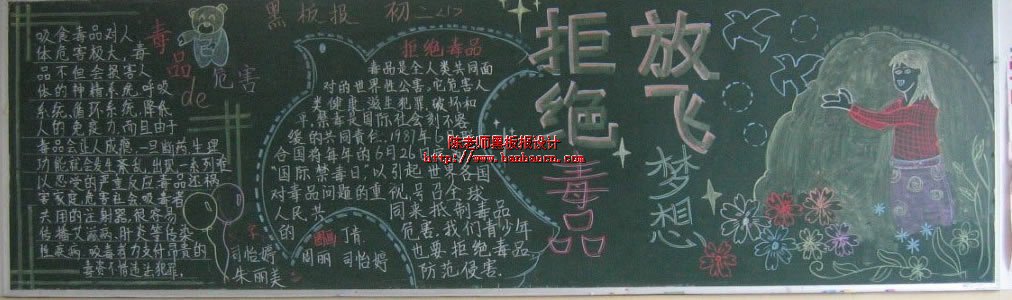 黑板报 初二<1>
毒品de危害
吸食毒品对人
体危害极大,毒
品不但会损害人
体的神经系统,呼吸
系统,循环系统,降低
人的免疫力,而且由于
毒品会让人成瘾,一旦断药生理
功能就会发生紊乱,出现一系列难
以忍受的严重反应毒品还祸
害家庭,危害社会吸毒者
共用的注射器很容易
传播艾滋病,肝炎等传染
性疾病,吸毒者为支付昂贵的
毒资不惜违法犯罪。
拒绝毒品
毒品是全人类共同面
对的世界性公害,它危害人
类健康,滋生犯罪,破坏和
平,禁毒是国际社会刻不容
缓的共同责任,1987年6月,联
合国将每年的6月26日
国际禁毒日,以引起世界各国
对毒品问题的重视,号召全球
人民共同来抵制毒品
的危害,我们青少年
也要拒绝毒品
防范侵害.
丁肯
司怡婷 周丽 司怡婷
朱丽美
拒绝毒品
放飞梦想
陈老师黑板报设计
http://www.hanbancn.com